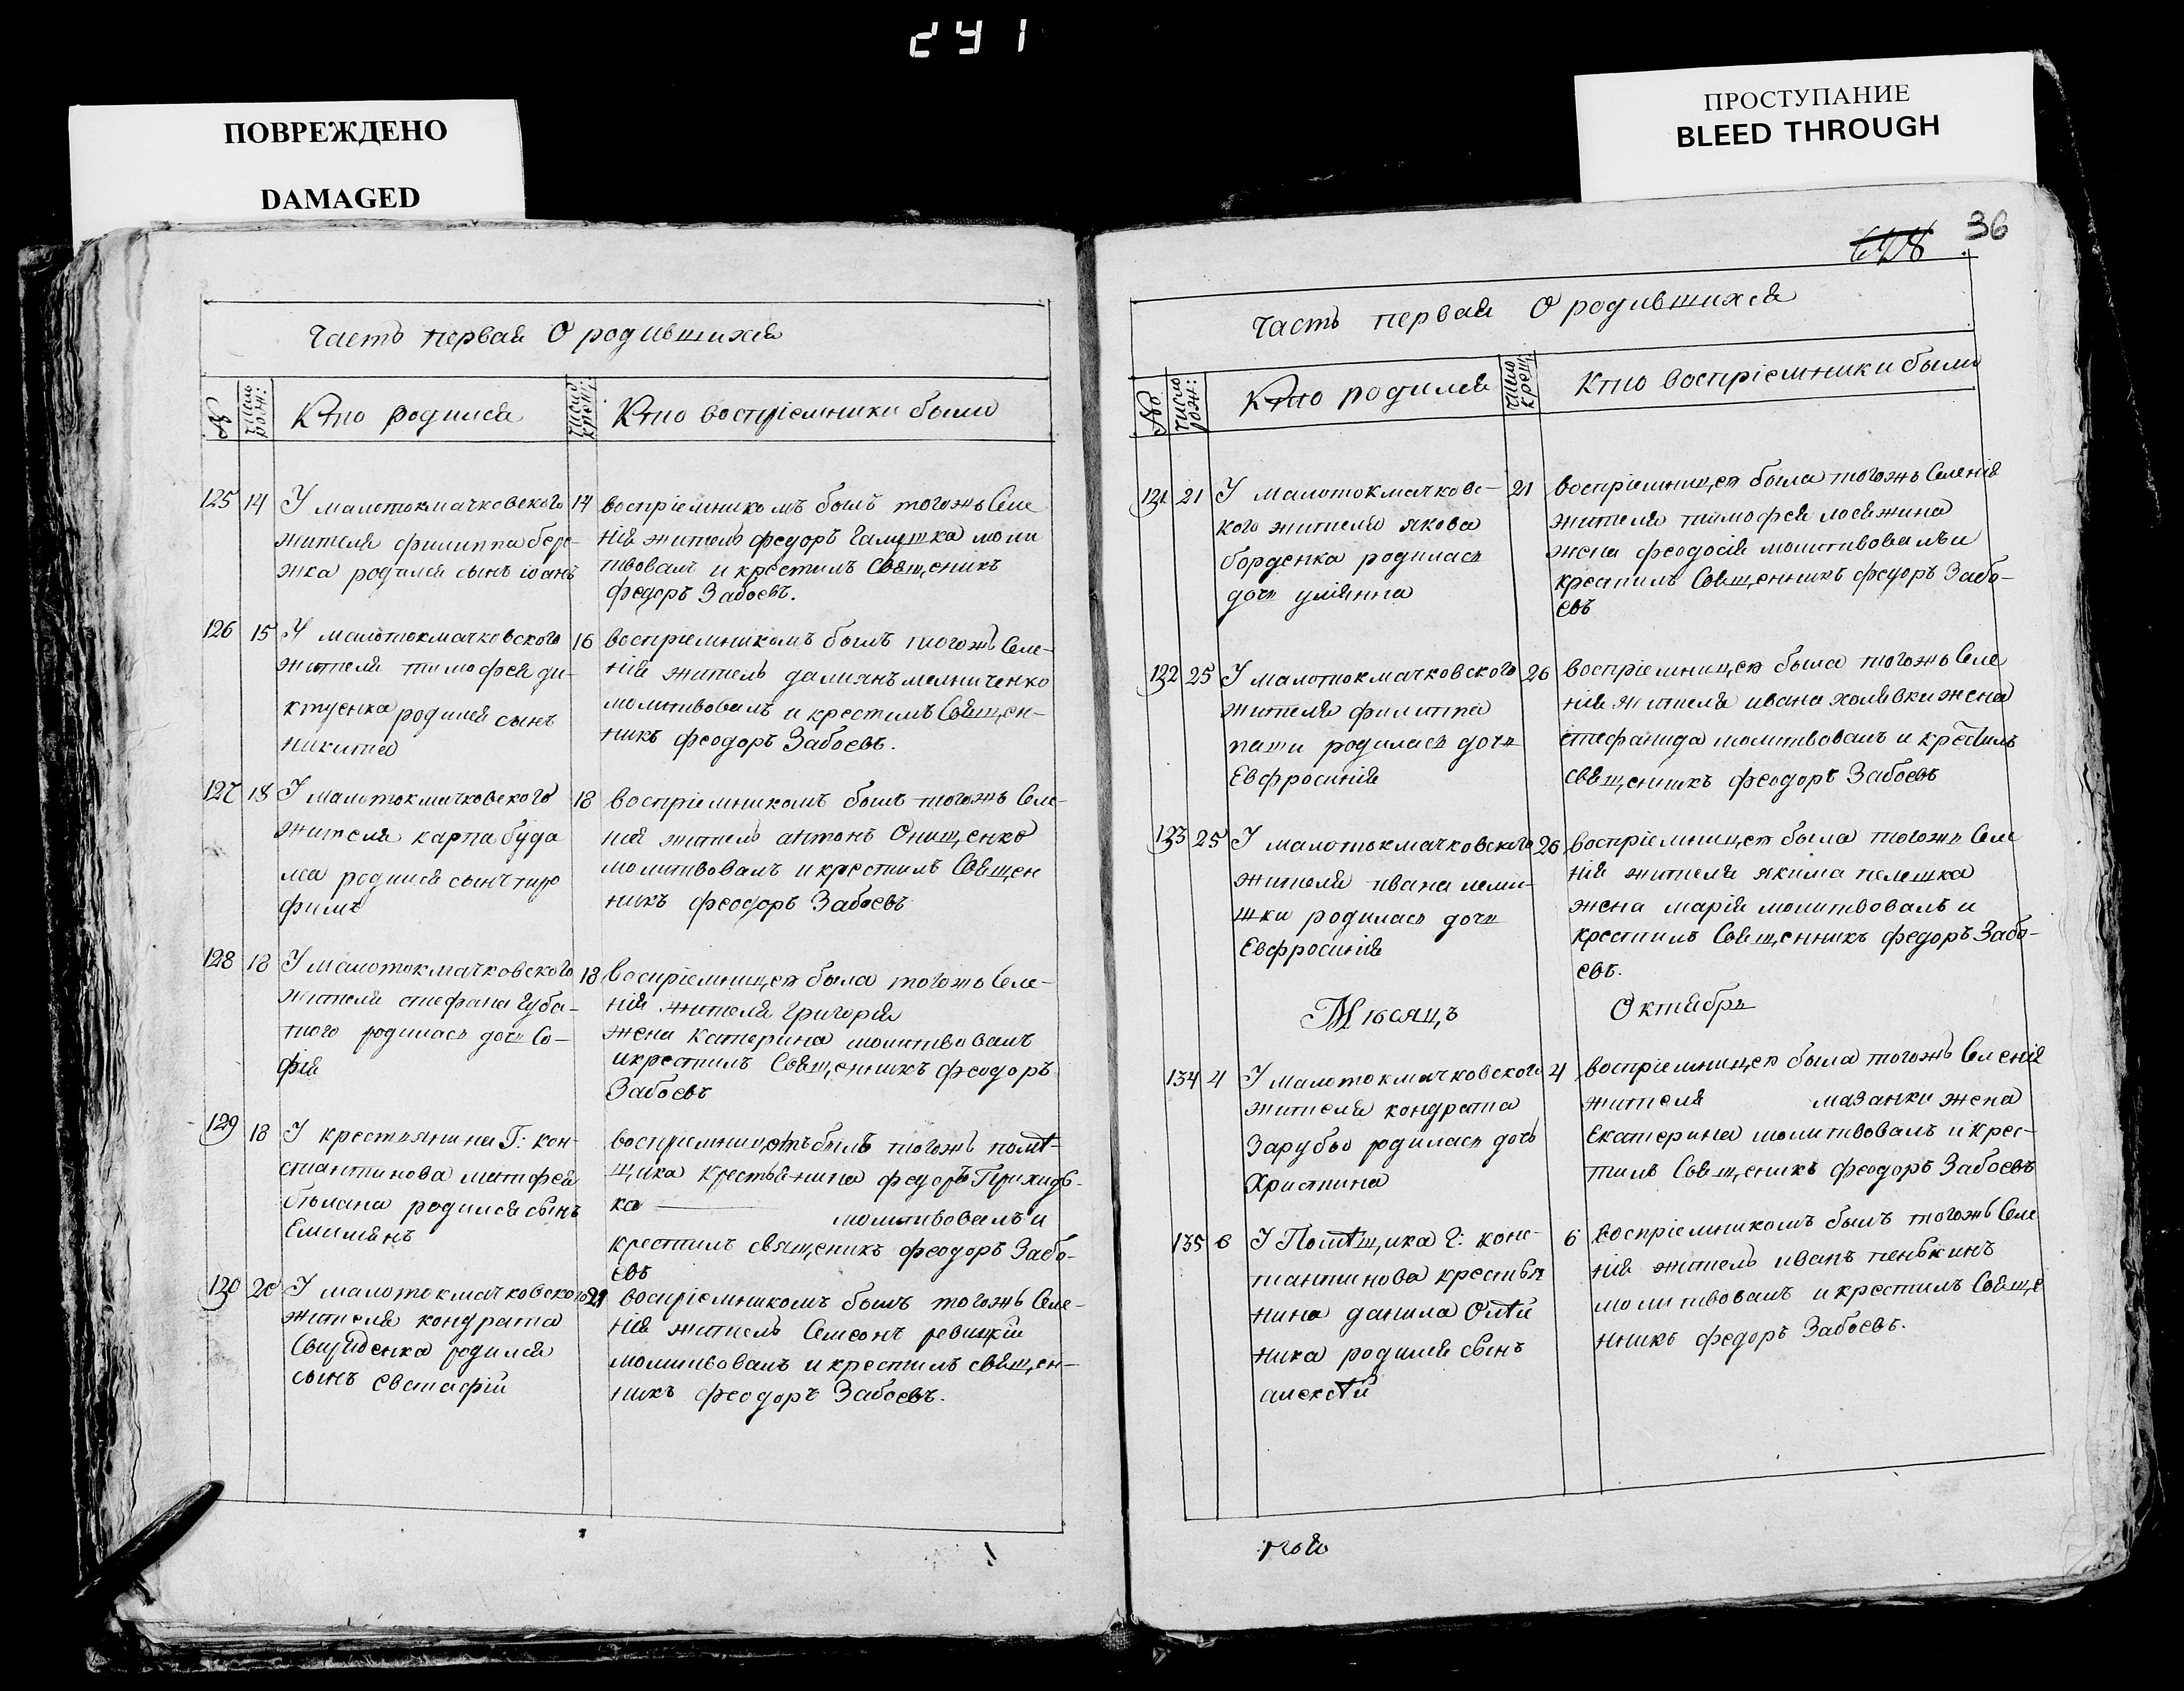 241
ПОВРЕЖДЕНО
DAMAGED
ПРОСТУПАНИЕ
BLEED THROUGH
Часть первая О родившихся
№
число рож:
Кто родился
число крещ:
Кто воспріемники были
125 14 У малотокмачковского 14
жителя филиппа бере-
жка родился сынъ іоанъ
воспріемникомъ былъ тогожъ Селе
нія житель федоръ Галушка моли
твовалъ и крестилъ Священикъ
федоръ Забоевъ.
126 15 У малотокмачковского 16
жителя тимофея ди-
ктуенка родился сынъ
никита
воспріемникомъ былъ тогожъ Селе-
нія житель даміянъ мелниченко
молитвовалъ и крестилъ Священ-
никъ феодоръ Забоевъ.
127 18 У малотокмачковского 18
жителя карпа буда
ма родился сынъ тиро
филъ
воспріемникомъ былъ тогожъ Селе-
нія житель антонъ Онищенко
молитвовалъ и крестилъ Священ
никъ феодоръ Забоевъ
128 18 У малотокмачковского 18
жителя стефана губа-
того родилась дочь Со-
фія
воспріемницею была тогожъ Селе-
нія жителя Григорія
жена Катерина молитвовалъ
и крестилъ Священникъ феодоръ
Забоевъ
129 18 У крестьянина Г: кон-
стантинова матфея
Стьмана родился сынъ
Емиліянъ
воспріемникомъ былъ тогожъ помѣ-
щика крестьянина федоръ Приходь-
ка молитвовалъ и
крестилъ священикъ феодоръ Забо-
евъ
130 20 У малотокмачковского 21
жителя кондрата
Свириденка родился
сынъ евстафій
воспріемникомъ былъ тогожъ Селе-
нія житель Симеонъ ревицкій
молитвовалъ и крестилъ священ-
никъ феодоръ Забоевъ.
36
Часть первая О родившихся
№
число рож:
Кто родился
число крещ:
Кто воспріемники были
131 21 У малотокмачковс- 21
кого жителя якова
борденка родилась
дочь уліянна
воспріемницею была тогожъ Селенія
жителя тимофея лосижина
жена феодосія молитвовалъ и
крестилъ Священникъ федоръ Забо-
евъ
132 25 У малотокмачковского 26
жителя филиппа
паши родилась дочь
Евфросинія
воспріемницею была тогожъ Селе
нія жителя ивана холявки жена
стефанида молитвовалъ и крестилъ
священникъ феодоръ Забоевъ
133 25 У малотокмачковского 26
жителя ивана леми-
шки родилась дочь
Евфросинія
воспріемницею была тогожъ Селе
нія жителя якима пелешка
жена марія молитвовалъ и
крестилъ Священникъ федоръ Забо-
евъ.
Мѣсяцъ Октябрь
134 4 У малотокмачковского 4
жителя кондрата
Зарубы родилась дочь
Христина
воспріемницею была тогожъ Селенія
жителя мазанки жена
Екатерина молитвовалъ и крес-
тилъ Священикъ феодоръ Забоевъ
135 6 У Помѣщика Г: конс- 6
тантинова крестья
нина данила Олѣй
ника родился сынъ
алексѣй
воспріемникомъ былъ тогожъ Селе
нія житель иванъ пенькинъ
молитвовалъ и крестилъ Свяще
нникъ федоръ Забоевъ.